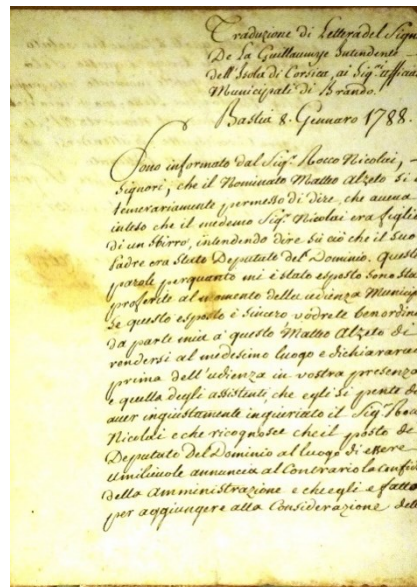 Traduzione di Lettera del Sign
De La Guillaumye Intendente
dell'Isola di Corsica, ai Sig.ri Officiali
Municipali di Brando.
Bastia 8. Gennaro 1788.
Sono informato dal Sig.r Rocco Nicolai,
Signori, che il Nominato Matteo Alzeto si è
temerariamente permesso di dire, che aveva
inteso che il medemo Sig.r Nicolai era figlio
di un Sbirro, intendendo dire su ciò che il Suo
Padre era stato Deputato del Dominio. Queste
parole perquanto mi è stato esposto sono sta
proferite al momento della udienza Municip
Se questo esposto è sincero vodrete ben ordin
da parte mia a questo Matteo Alzeto di
rendersi al medesimo luogo e dichiarare
prima dell'udienza in vostra presenza
e quella degli assistenti, che egli si pente d
aver ingiustamente ingiuriato il Sig.r Rocc
Nicolai e che ricognosce che il posto de
Deputato del Dominio al luogo di essere
umiliante annuncia al Contrario la Confid
della Amministrazione e che egli è fatto
per aggiungere alla Considerazione del